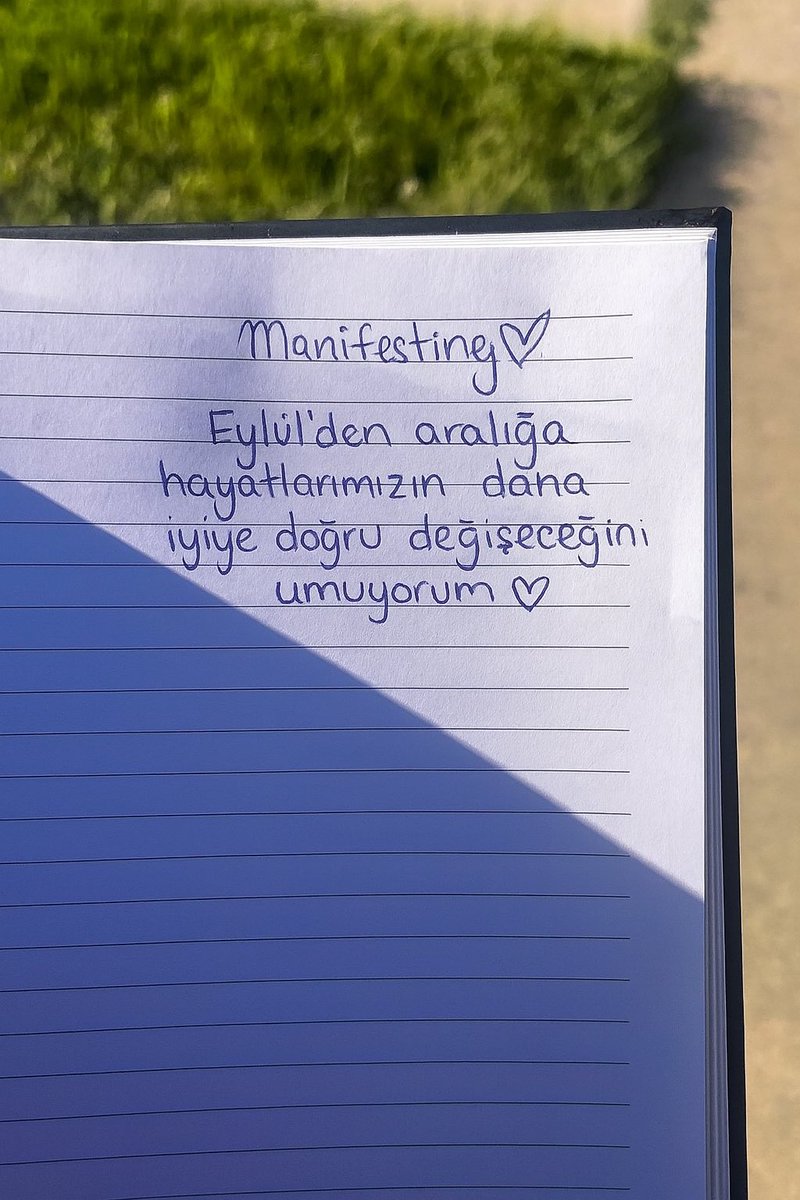 Manifesting♡
Eylül'den aralığa
hayatlarımızın daha
iyiye doğru değişeceğini
umuyorum ♡